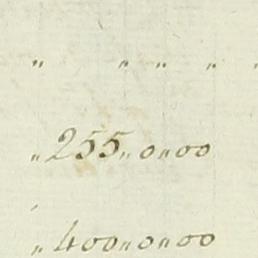 " " " " "
"255"0"00
"400"0"00